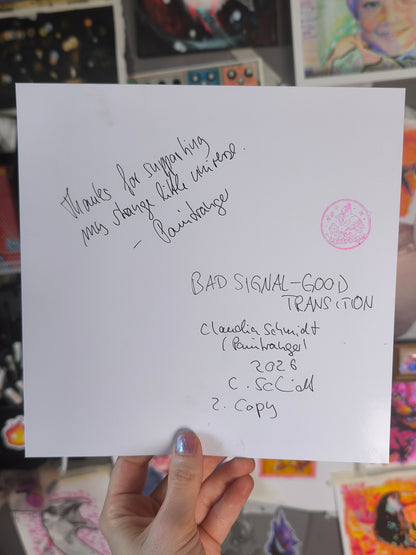 Thanks for supporting
my strange little universe.
- Paintranger
BAD SIGNAL-GOOD
TRANSITION
Claudia Schmidt
(Paintranger)
2026
2. Copy